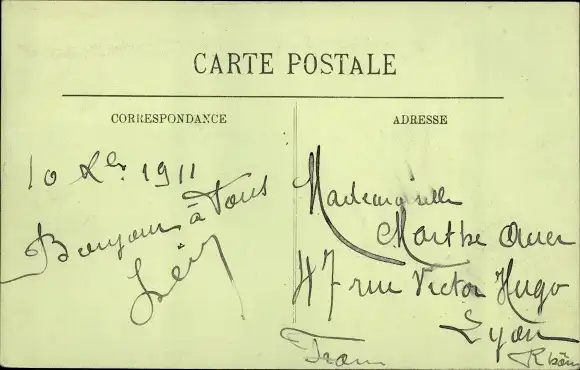 CARTE POSTALE
CORRESPONDANCE
ADRESSE
10 1911
Bonjour à Tous
Mademoiselle
Marthe
47 rue Victor Hugo
Lyon
Rhône